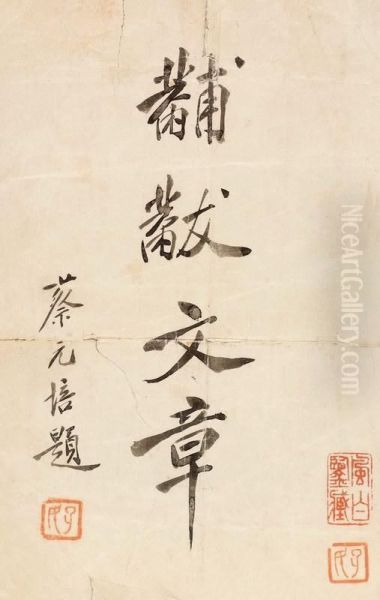 黼黻文章
蔡元培題
鑒藏
子民
子民
NiceArtGallery.com